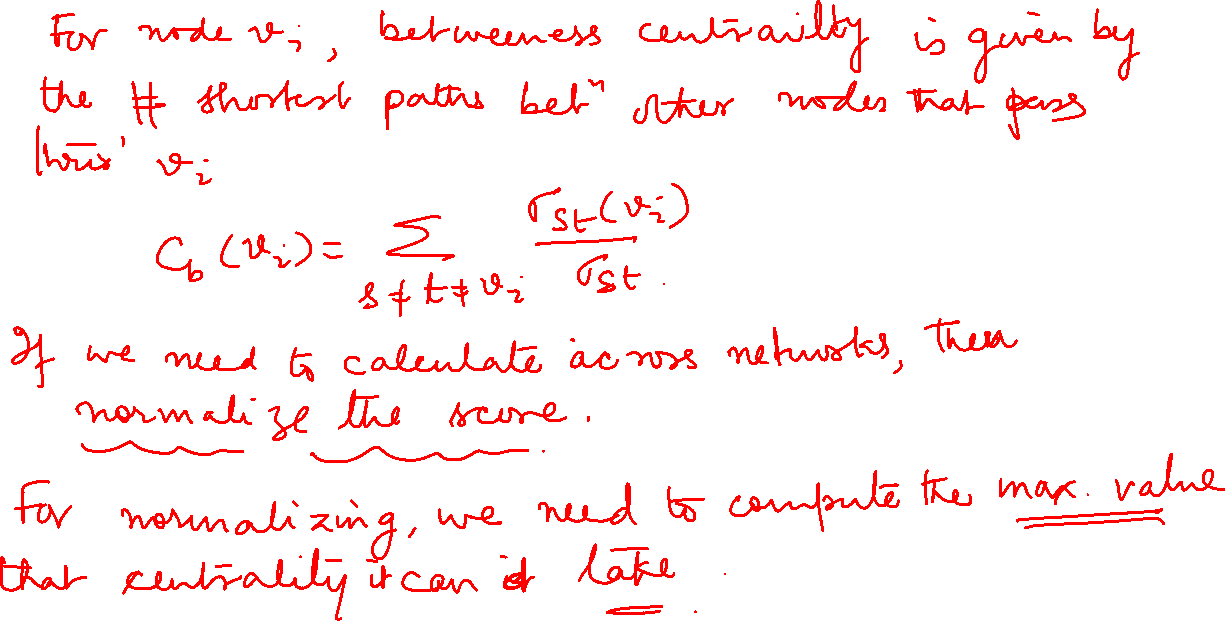 For node vᵢ, betweeness centrailty is given by
the # shortest paths betⁿ other nodes that pass
thru' vᵢ
C_b (vᵢ) = Σ_{s ≠ t ≠ vᵢ} σ_st(vᵢ) / σ_st .
If we need to calculate across networks, then
normalize the score.
For normalizing, we need to compute the max. value
that centrality it can take.